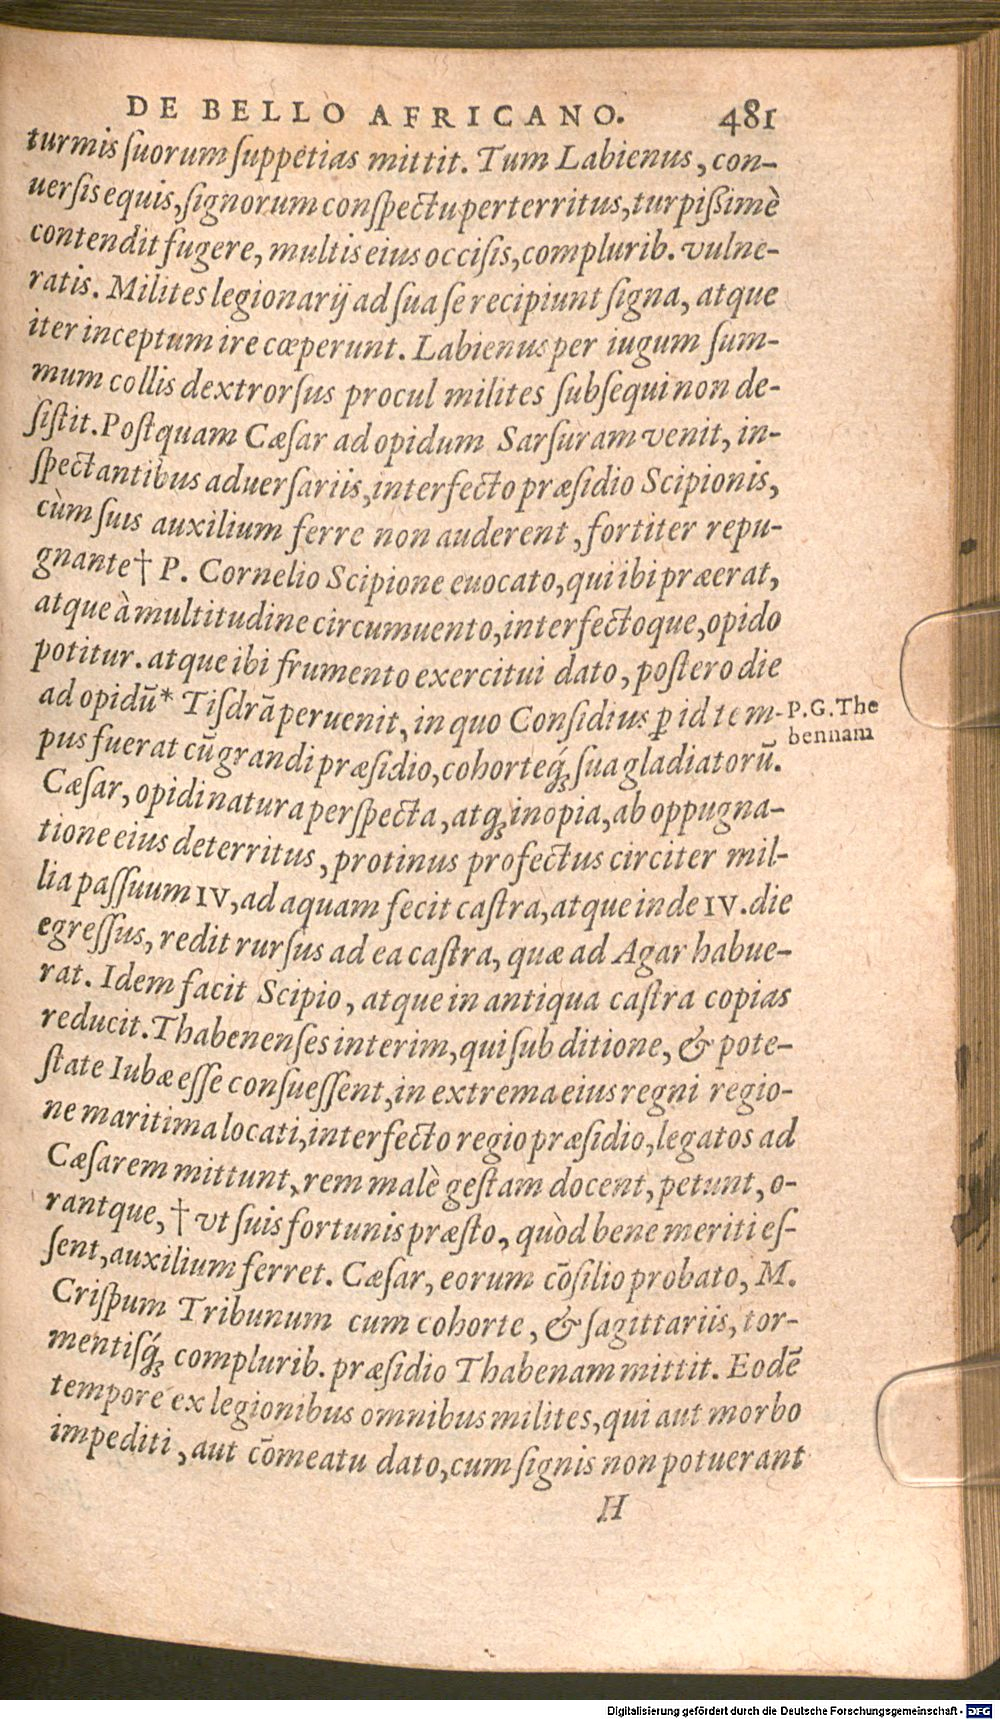 DE BELLO AFRICANO. 481
turmis ſuorum ſuppetias mittit. Tum Labienus, con-
uerſis equis, ſignorum conſpectu perterritus, turpißimè
contendit fugere, multis eius occiſis, complurib. vulne-
ratis. Milites legionarij ad ſua ſe recipiunt ſigna, atque
iter inceptum ire cœperunt. Labienus per iugum ſum-
mum collis dextrorſus procul milites ſubſequi non de-
ſiſtit. Poſtquam Cæſar ad opidum Sarſuram venit, in-
ſpectantibus aduerſariis, interfecto præſidio Scipionis,
cùm ſuis auxilium ferre non auderent, fortiter repu-
gnante† P. Cornelio Scipione euocato, qui ibi præerat,
atque à multitudine circumuento, interfectoque, opido
potitur. atque ibi frumento exercitui dato, poſtero die
ad opidũ* Tiſdrã peruenit, in quo Conſidius ꝑ id tem-
P.G.The
bennam
pus fuerat cũ grandi præſidio, cohorteq́; ſua gladiatorũ.
Cæſar, opidi natura perſpecta, atq; inopia, ab oppugna-
tione eius deterritus, protinus profectus circiter mil-
lia paſſuum IV, ad aquam fecit caſtra, atque inde IV. die
egreſſus, redit rurſus ad ea caſtra, quæ ad Agar habue-
rat. Idem facit Scipio, atque in antiqua caſtra copias
reducit. Thabenenſes interim, qui ſub ditione, & pote-
ſtate Iubæ eſſe conſueſſent, in extrema eius regni regio-
ne maritima locati, interfecto regio præſidio, legatos ad
Cæſarem mittunt, rem malè geſtam docent, petunt, o-
rantque, † vt ſuis fortunis præſto, quòd bene meriti eſ-
ſent, auxilium ferret. Cæſar, eorum cõſilio probato, M.
Criſpum Tribunum cum cohorte, & ſagittariis, tor-
mentiſq́; complurib. præſidio Thabenam mittit. Eodẽ
tempore ex legionibus omnibus milites, qui aut morbo
impediti, aut cõmeatu dato, cum ſignis non potuerant
H
Digitalisierung gefördert durch die Deutsche Forschungsgemeinschaft - DFG